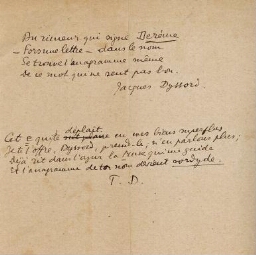 Un rimeur qui signe Derème
— Fors une lettre — dans le nom
Se trouve l'anagramme même
De ce mot qui ne sent pas bon.
Jacques Dyssord.
Cet e quite déplait en mes biens superflus
Je te l'offre, Dyssord, prends-le; n'en parlons plus;
Déjà rit dans l'azur la Muse qui me guide
Et l'anagramme de ton nom devient sordyde.
T. D.